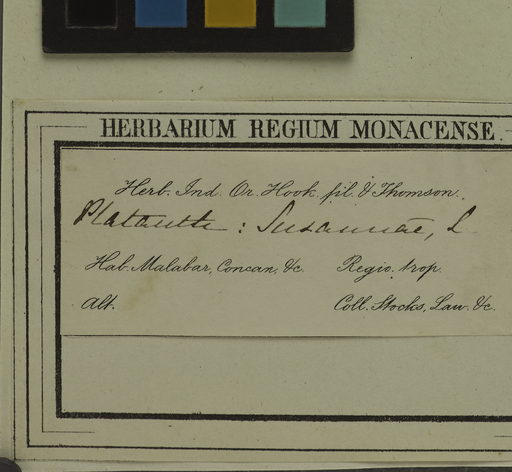 HERBARIUM REGIUM MONACENSE.
Herb. Ind. Or. Hook. fil. & Thomson.
Platanth : Susannae, L
Hab. Malabar, Concan, &c. Regio. trop.
Alt. Coll. Stocks, Law. &c.